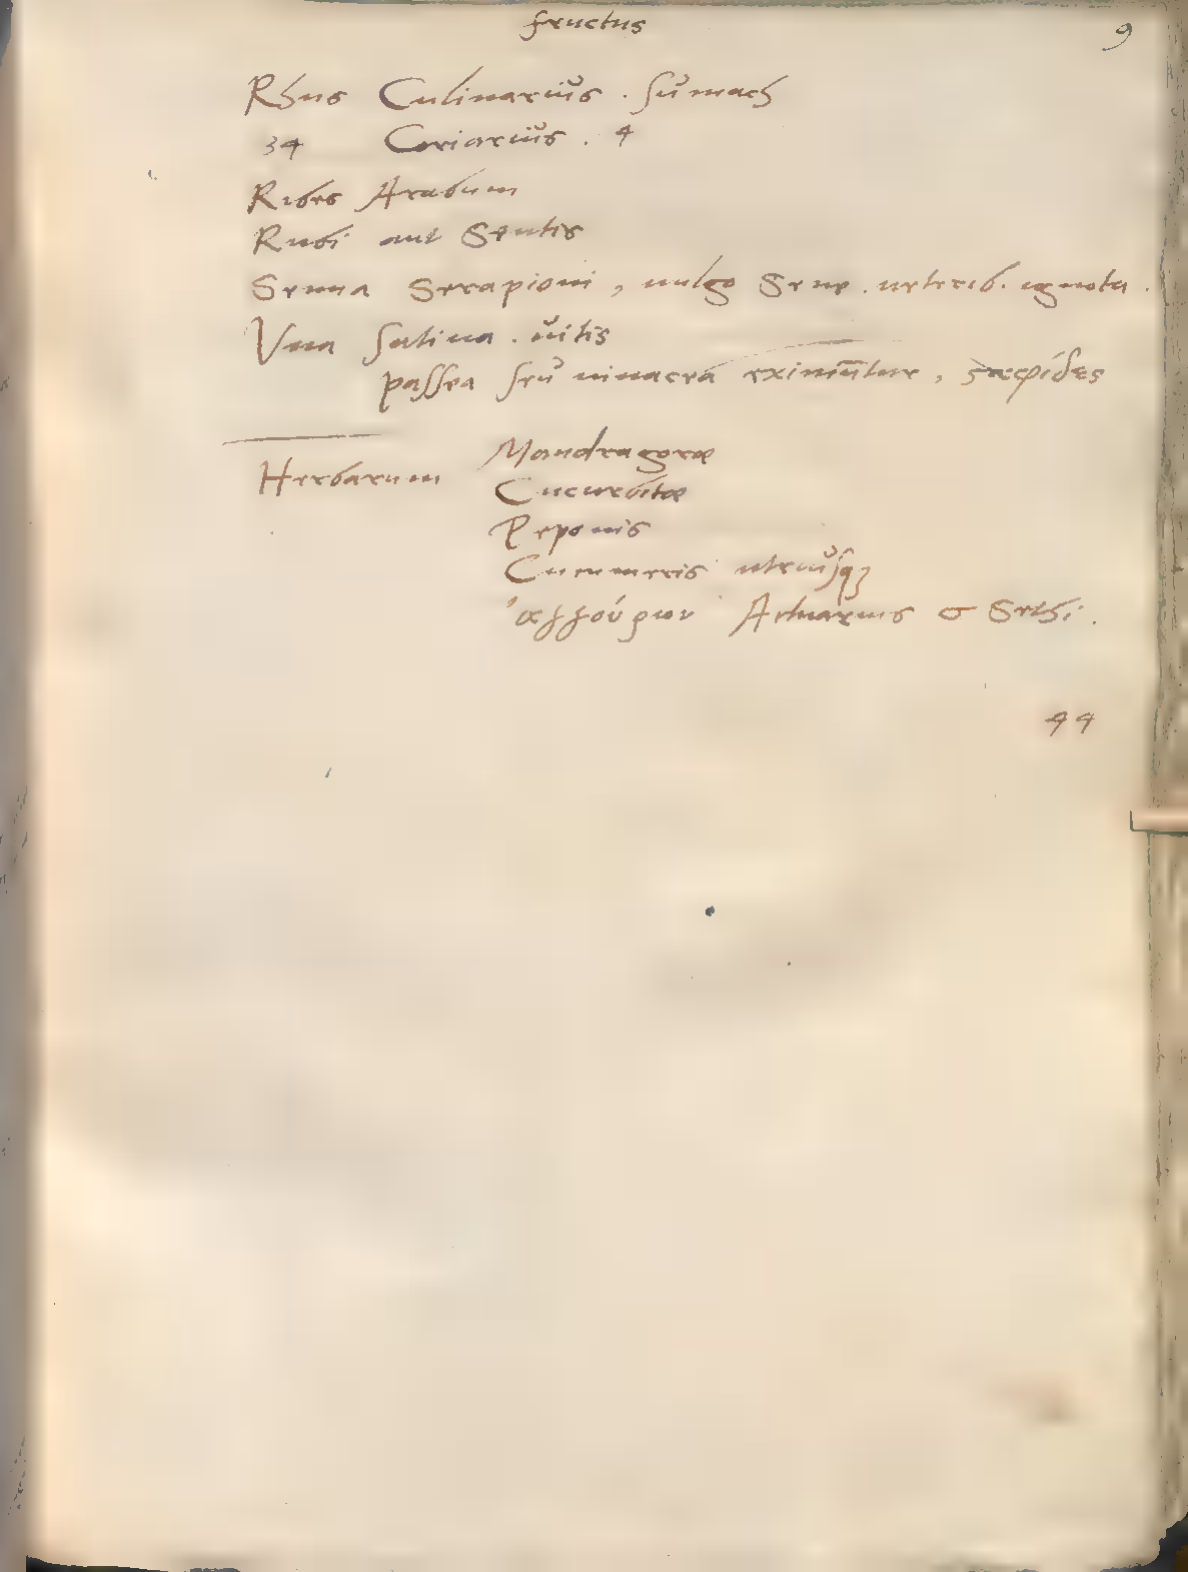 fructus 9
Rhus Culinariŭs . Sŭmach
34 Coriariŭs . 4
Ribes Arabum
Rubi aut Sentis
Senna Serapioni , uulgo Sene . ueterib. ignota .
Vua Satiua . ŭitis
passea seŭ uinacea eximūtur , σταφίδες
Herbarum Mandragoræ
Cucurbitæ
Peponis
Cucumeris utriŭsq;
ἀγγούριον Actuarius & Sethi .
44